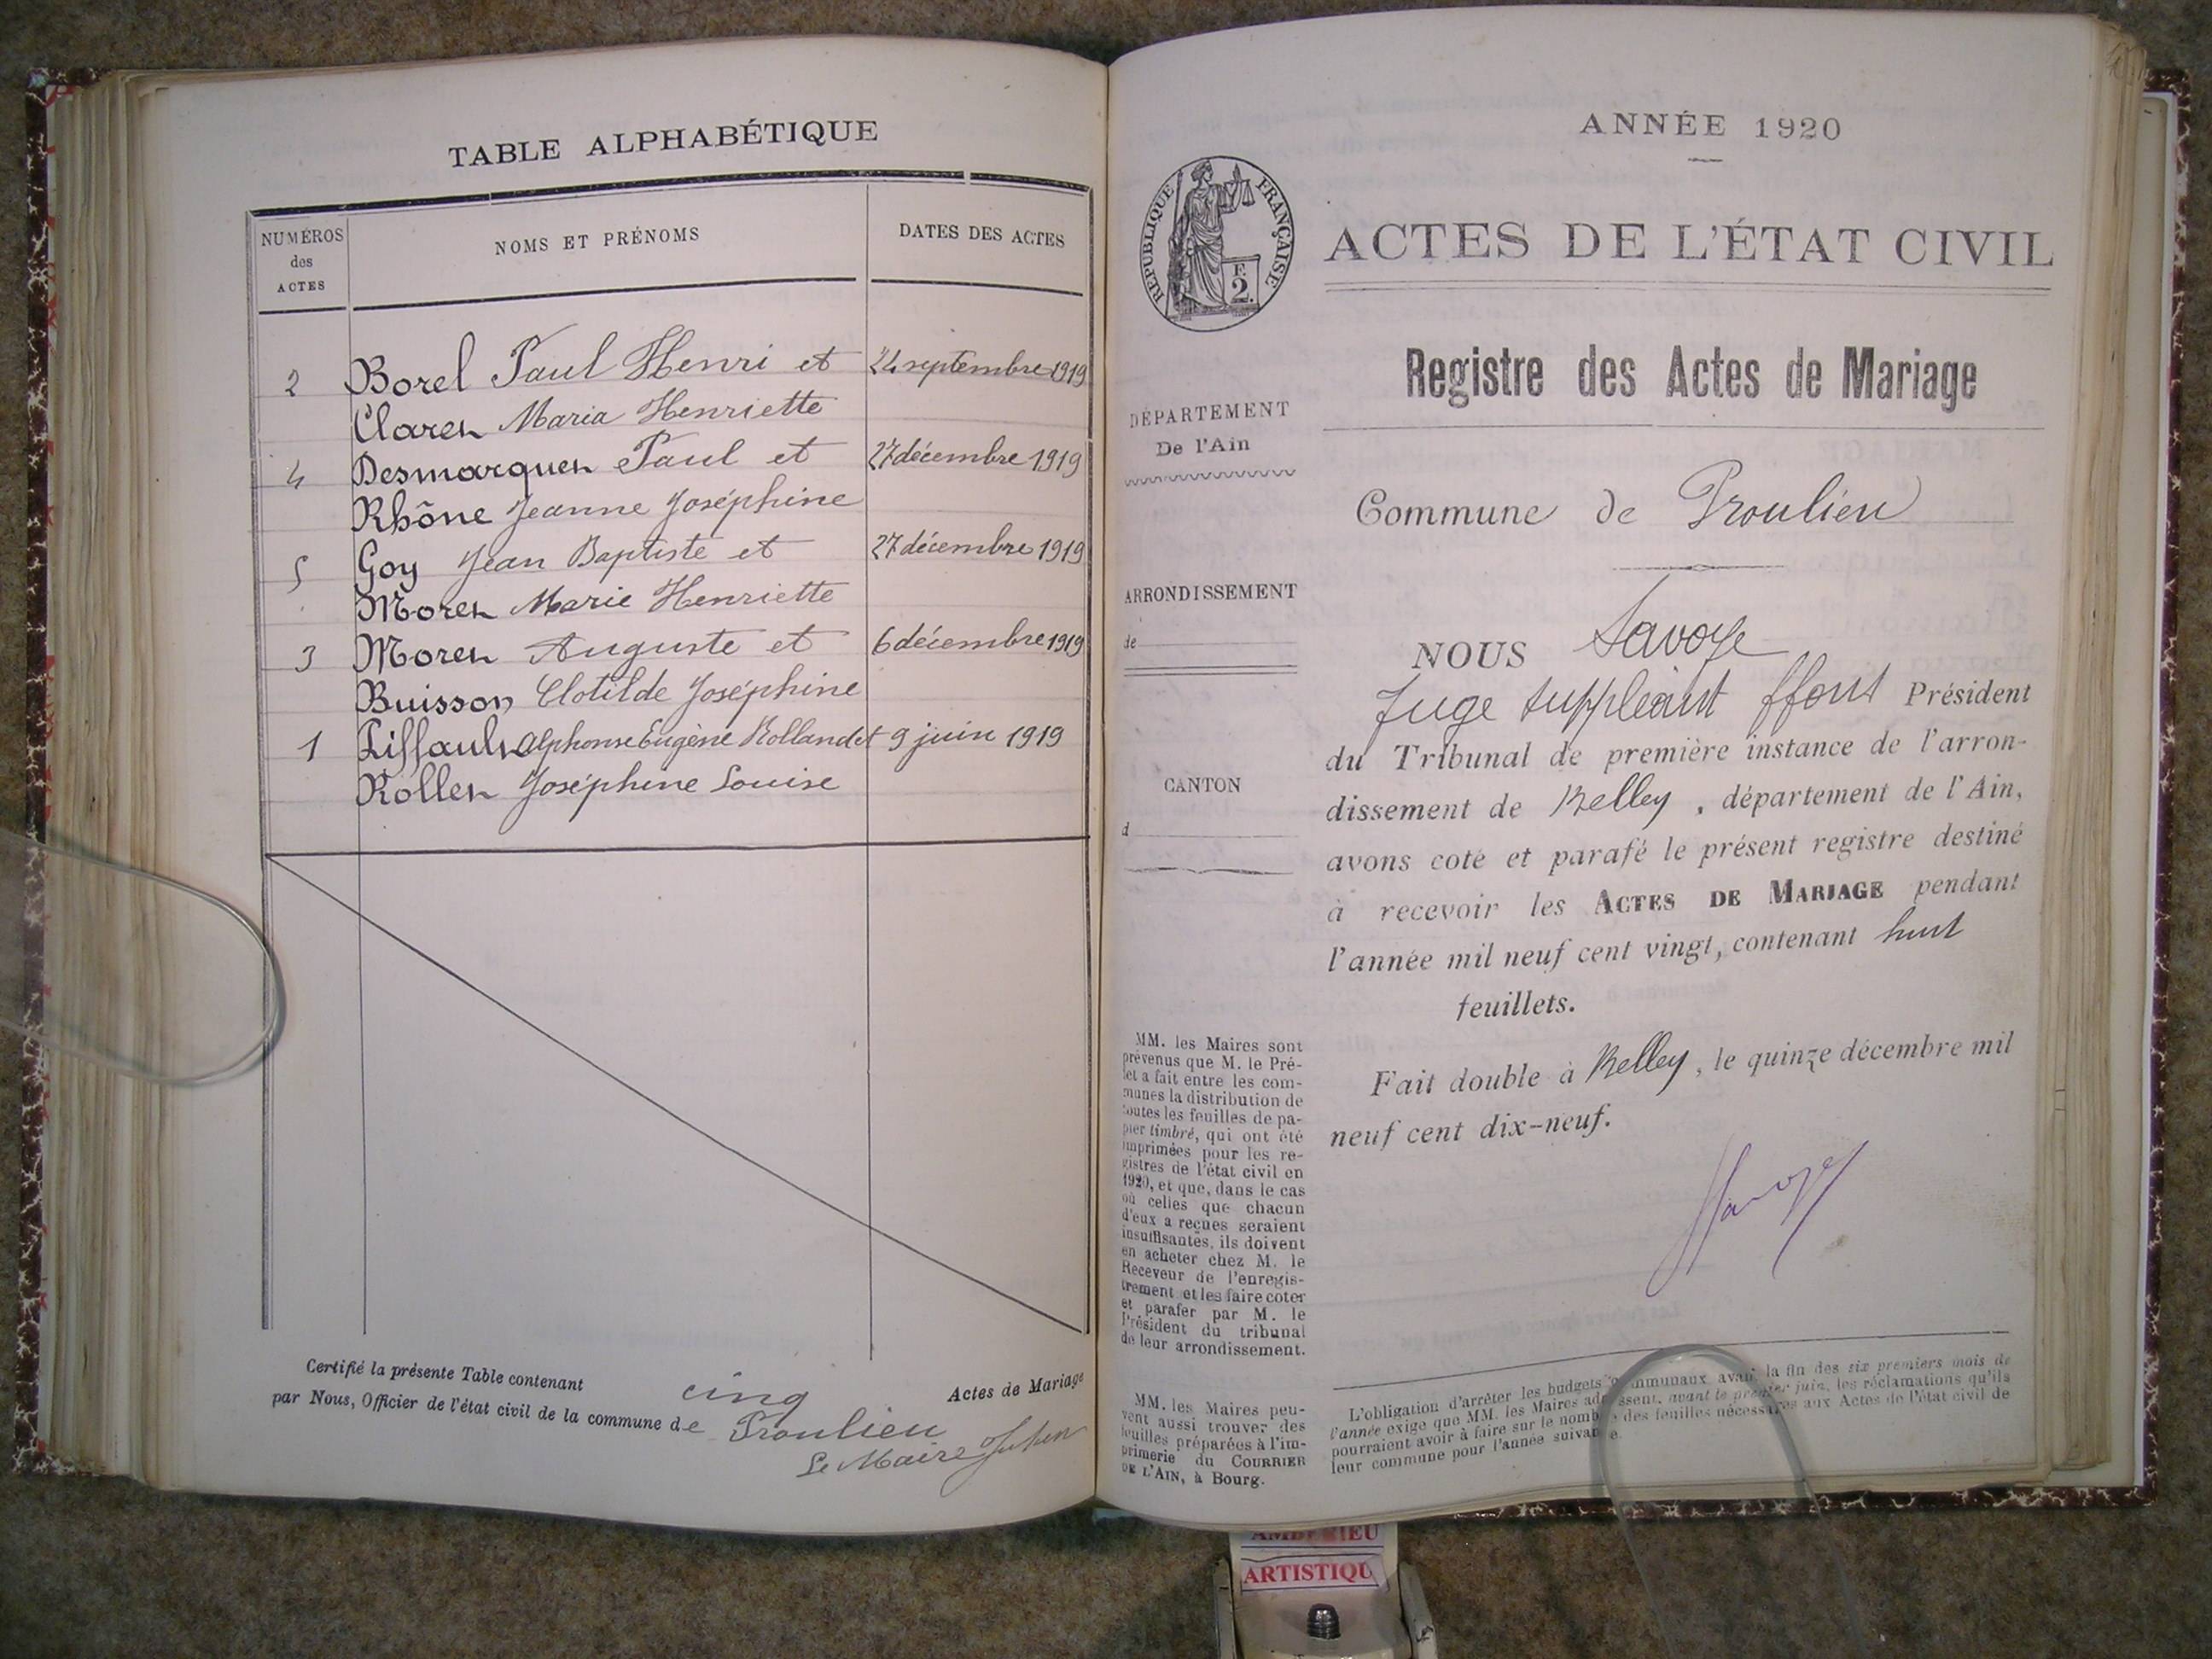 TABLE ALPHABÉTIQUE
NUMÉROS des ACTES
NOMS ET PRÉNOMS
DATES DES ACTES
2 Borel Paul Henri et 24 septembre 1919
Claret Maria Henriette
4 Desmarquet Paul et 27 décembre 1919
Rhône Jeanne Joséphine
5 Goy Jean Baptiste et 27 décembre 1919
Moret Marie Henriette
3 Moret Auguste et 6 décembre 1919
Buisson Clotilde Joséphine
1 Alphonse Eugène Rolland et 9 juin 1919
Rollet Joséphine Louise
Certifié la présente Table contenant cinq Actes de Mariage
par Nous, Officier de l'état civil de la commune de Proulieu
Le Maire
ANNÉE 1920
RÉPUBLIQUE FRANÇAISE
F.
2.
ACTES DE L'ÉTAT CIVIL
Registre des Actes de Mariage
DÉPARTEMENT
De l'Ain
ARRONDISSEMENT
de
CANTON
d
MM. les Maires sont
prévenus que M. le Pré-
fet a fait entre les com-
munes la distribution de
toutes les feuilles de pa-
pier timbré, qui ont été
imprimées pour les re-
gistres de l'état civil en
1920, et que, dans le cas
où celles que chacun
d'eux a reçues seraient
insuffisantes, ils doivent
en acheter chez M. le
Receveur de l'enregis-
trement et les faire coter
et parafer par M. le
Président du tribunal
de leur arrondissement.
MM. les Maires peu-
vent aussi trouver des
feuilles préparées à l'im-
primerie du COURRIER
DE L'AIN, à Bourg.
Commune de Proulieu
NOUS Savoye
Juge suppléant ffons Président
du Tribunal de première instance de l'arron-
dissement de Belley, département de l'Ain,
avons coté et parafé le présent registre destiné
à recevoir les ACTES DE MARIAGE pendant
l'année mil neuf cent vingt, contenant huit
feuillets.
Fait double à Belley, le quinze décembre mil
neuf cent dix-neuf.
Savoye
L'obligation d'arrêter les budgets communaux avant la fin des six premiers mois de
l'année exige que MM. les Maires adressent, avant le premier juin, les réclamations qu'ils
pourraient avoir à faire sur le nombre des feuilles nécessaires aux Actes de l'état civil de
leur commune pour l'année suivante.
AMBERIEU
ARTISTIQU